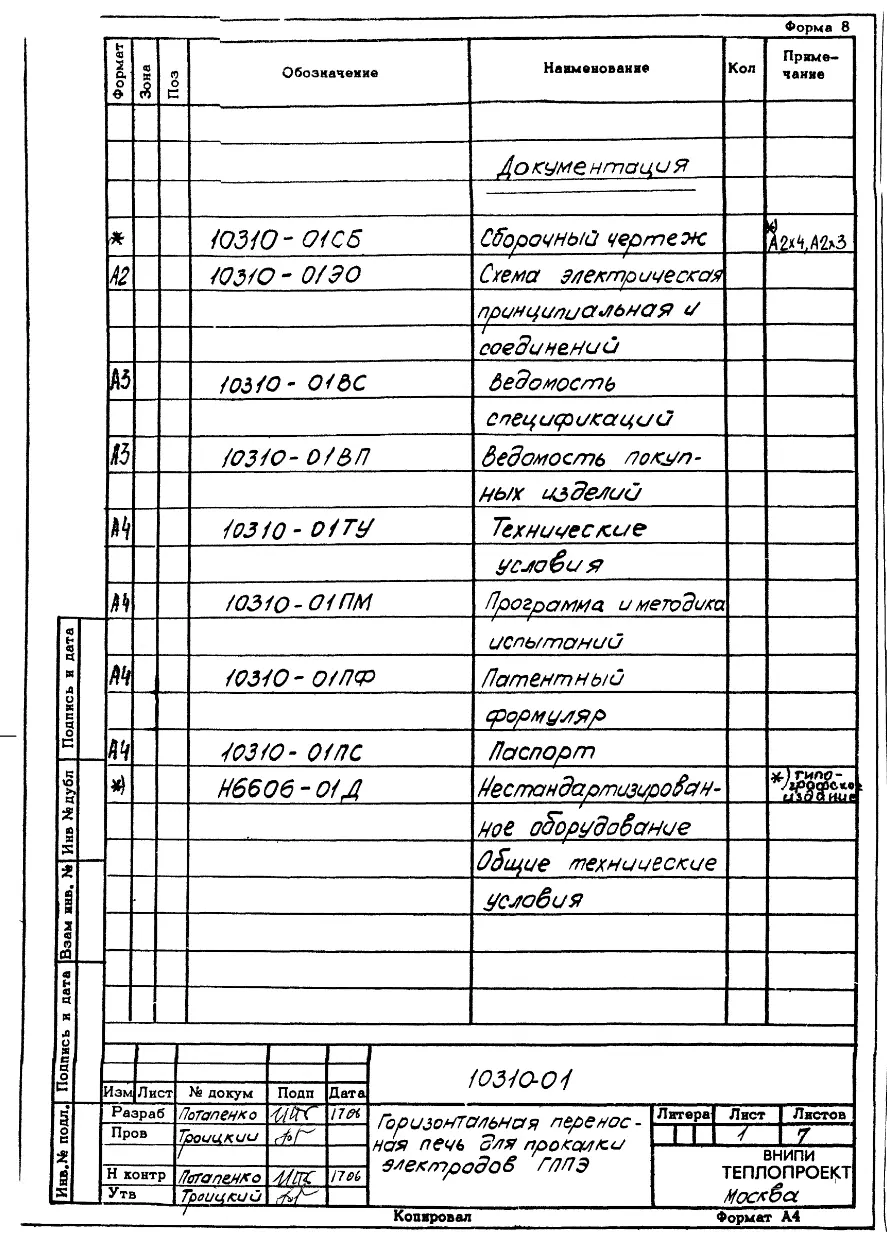 Форма 8
Формат Зона Поз Обозначение Наименование Кол Приме-
чание
Документация
* 10310-01СБ Сборочный чертеж *) А2х4, А2х3
А2 10310-01ЭО Схема электрическая
принципиальная и
соединений
А3 10310-01ВС Ведомость
спецификаций
А3 10310-01ВП Ведомость покуп-
ных изделий
А4 10310-01ТУ Технические
условия
А4 10310-01ПМ Программа и методика
испытаний
А4 10310-01ПФ Патентный
формуляр
А4 10310-01ПС Паспорт
*) Н6606-01Д Нестандартизирован- *) типо-
графское
издание
ное оборудование
Общие технические
условия
Подпись и дата
Инв № дубл
Взам инв. №
Подпись и дата
Инв.№ подл.
10310-01
Изм Лист № докум Подп Дата
Разраб Потапенко 1706
Пров Троицкии
Н контр Потапенко 1706
Утв Троицкий
Горизонтальная перенос-
ная печь для прокалки
электродов ГППЭ
Литера Лист Листов
1 7
ВНИПИ
ТЕПЛОПРОЕКТ
Москва
Копировал Формат А4